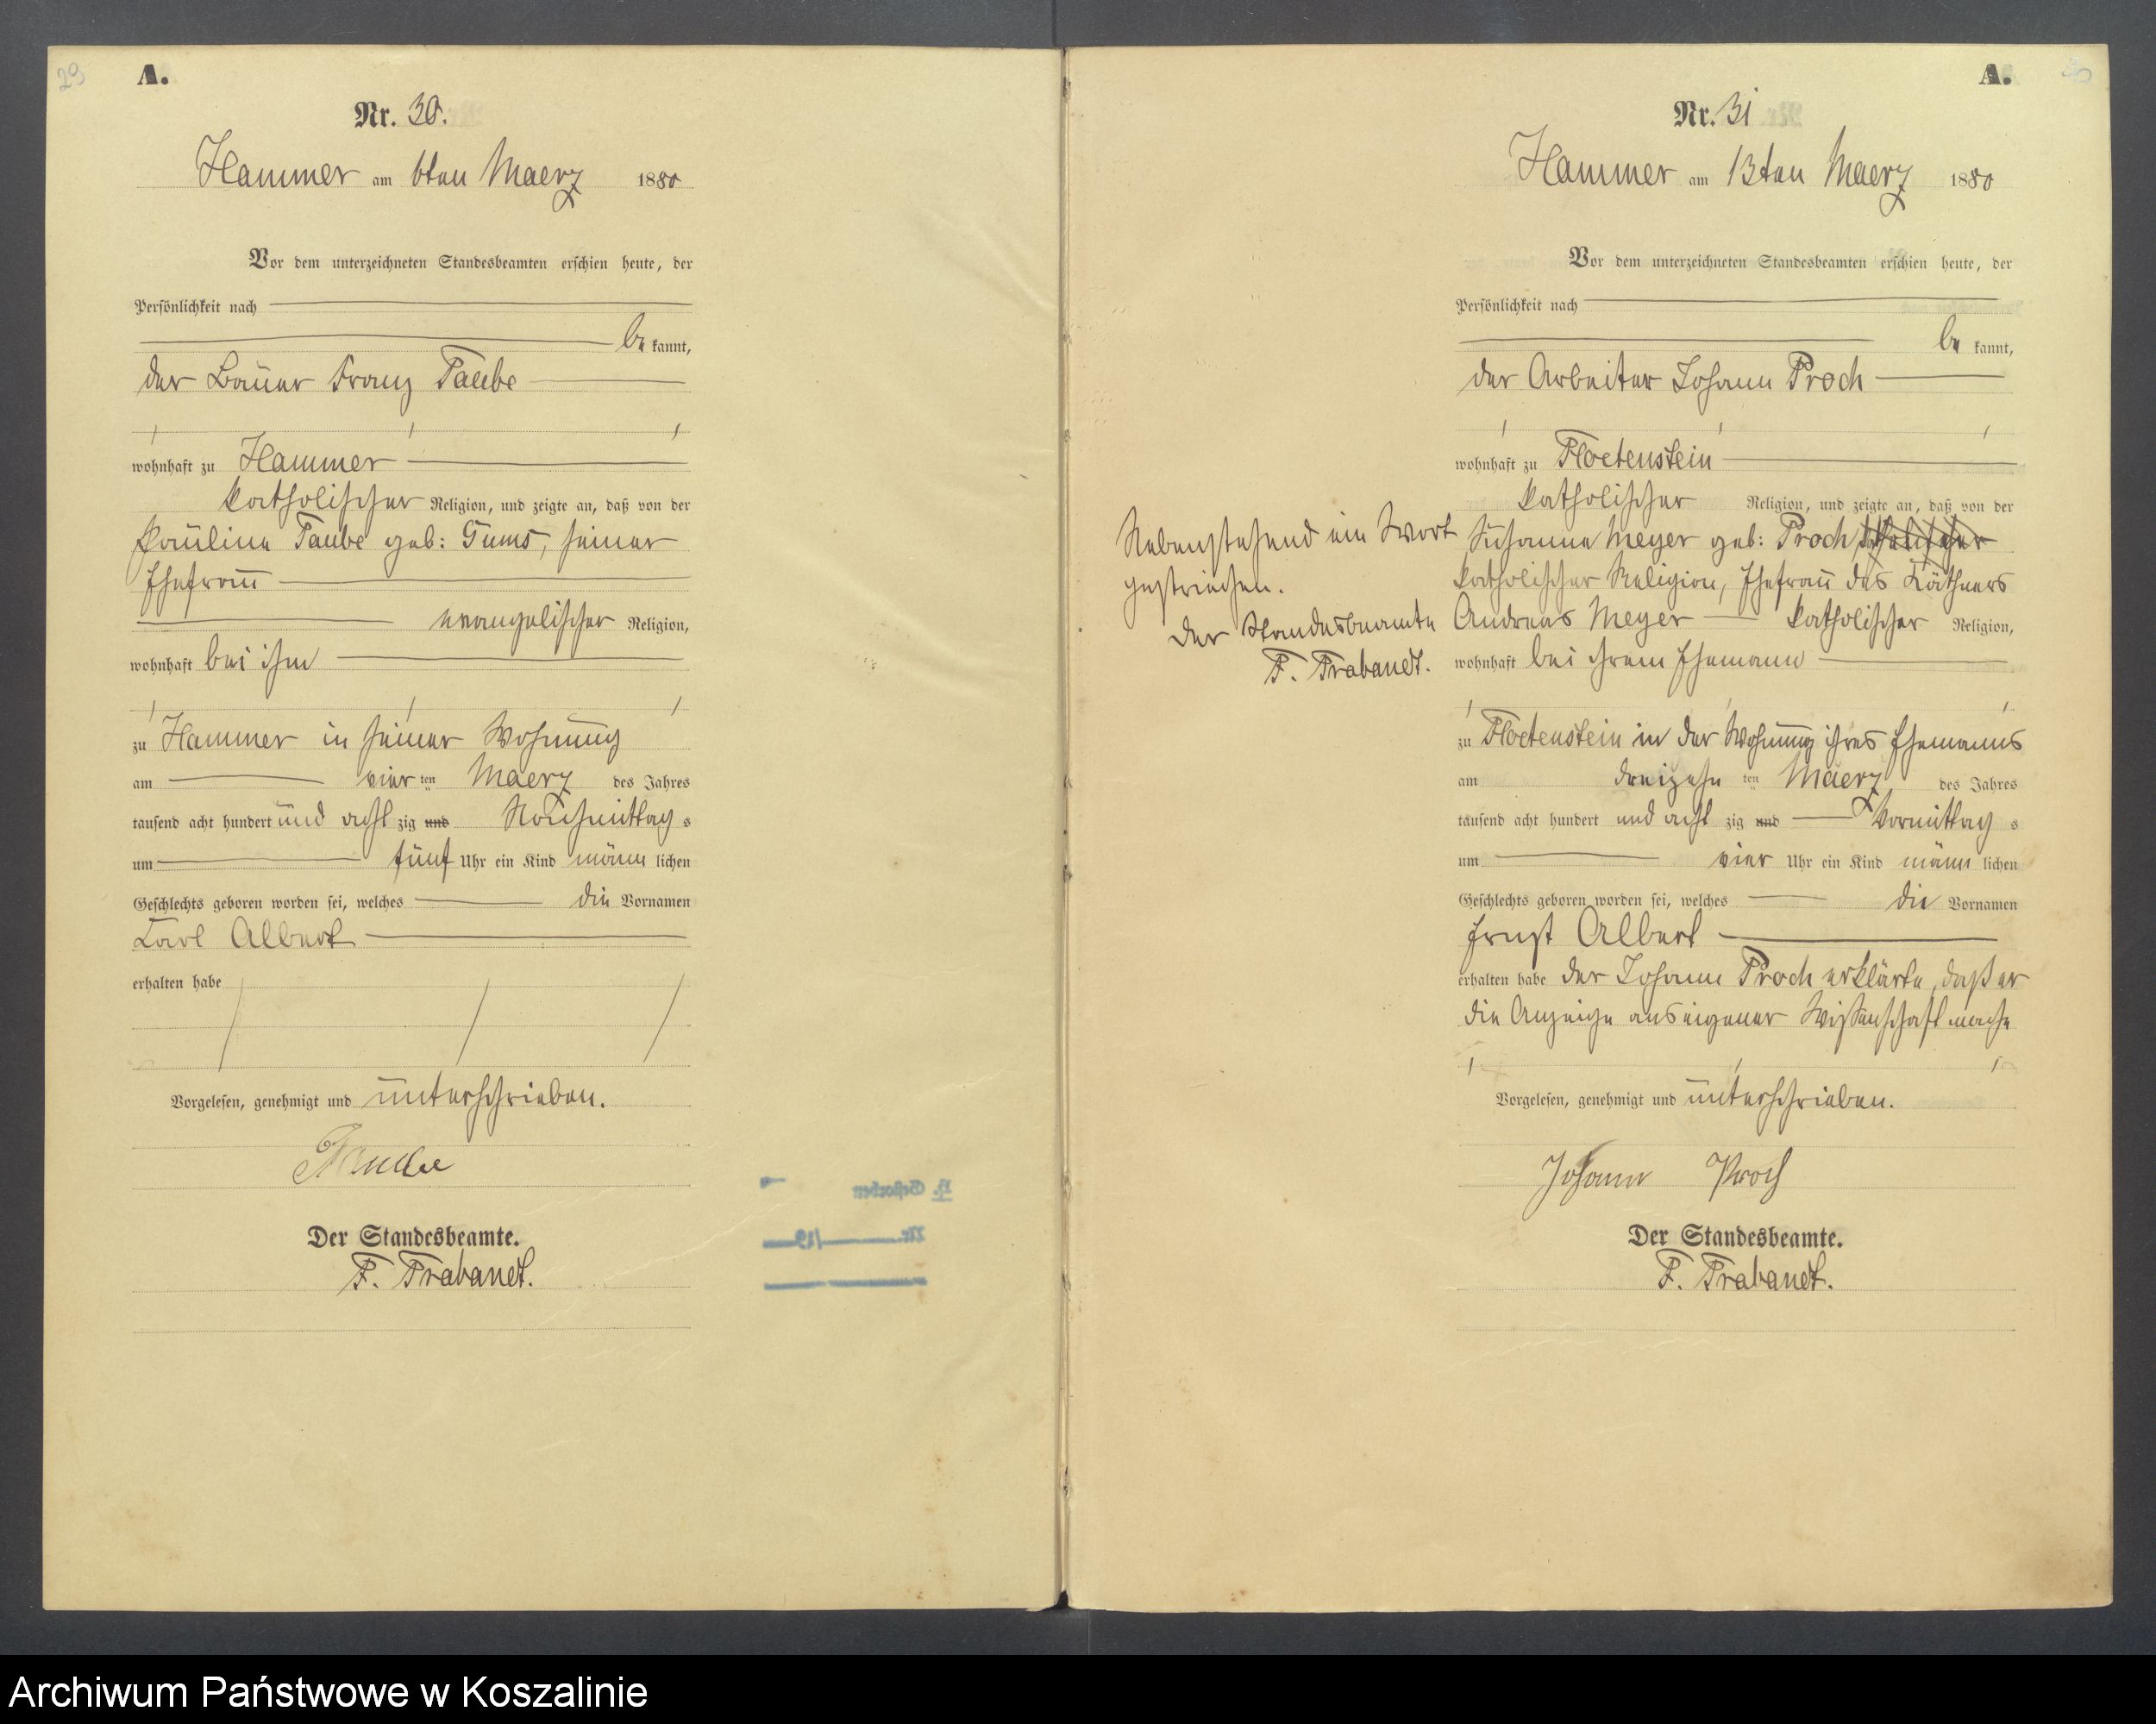 29
A.
Nr. 30.
Hammer am 6ten Maerz 1880
Vor dem unterzeichneten Standesbeamten erschien heute, der
Persönlichkeit nach
be kannt,
der Bauer Franz Taube
wohnhaft zu Hammer
katholischer Religion, und zeigte an, daß von der
Pauline Taube geb: Gums, seiner
Ehefrau
evangelischer Religion,
wohnhaft bei ihm
zu Hammer in seiner Wohnung
am vier ten Maerz des Jahres
tausend acht hundert und acht zig und Nachmittag s
um fünf Uhr ein Kind männ lichen
Geschlechts geboren worden sei, welches die Vornamen
Carl Albert
erhalten habe
Vorgelesen, genehmigt und unterschrieben.
Taube
Der Standesbeamte.
F. Trabandt.
A.
Nr. 31
Hammer am 13ten Maerz 1880
Vor dem unterzeichneten Standesbeamten erschien heute, der
Persönlichkeit nach
be kannt,
der Arbeiter Johann Proch
wohnhaft zu Floetenstein
katholischer Religion, und zeigte an, daß von der
Susanna Meyer geb: Proch
katholischer Religion, Ehefrau des Käthners
Andreas Meyer katholischer Religion,
wohnhaft bei ihrem Ehemann
Nebenstehend ein Wort
gestrichen.
Der Standesbeamte
F. Trabandt.
zu Floetenstein in der Wohnung ihres Ehemanns
am dreizehn ten Maerz des Jahres
tausend acht hundert und acht zig und Vormittag s
um vier Uhr ein Kind männ lichen
Geschlechts geboren worden sei, welches die Vornamen
Ernst Albert
erhalten habe der Johann Proch erklärte, daß er
die Anzeige aus eigener Wissenschaft mache
Vorgelesen, genehmigt und unterschrieben.
Johann Proch
Der Standesbeamte.
F. Trabandt.
Archiwum Państwowe w Koszalinie